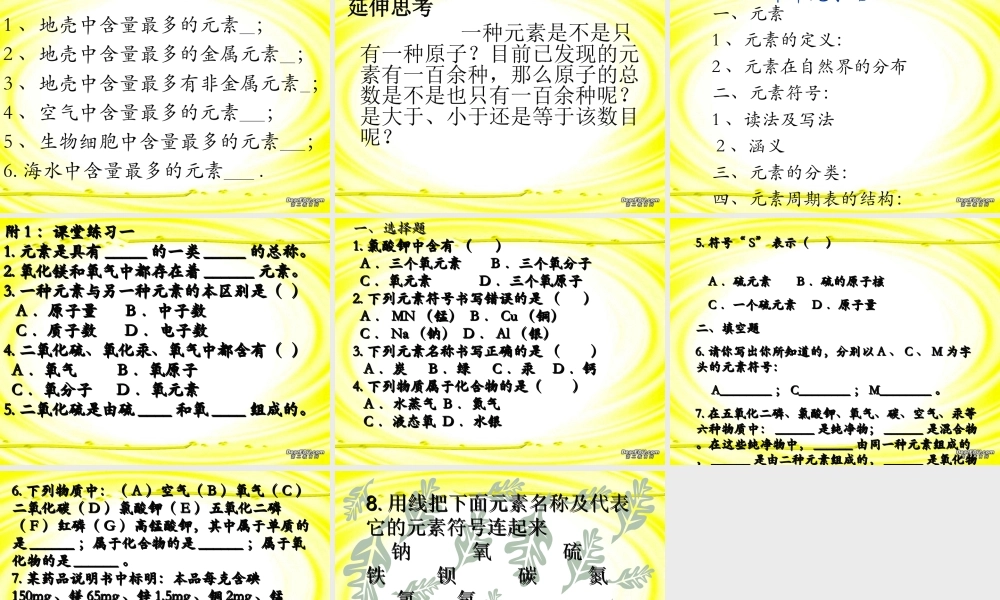 1、地壳中含量最多的元素__;
2、地壳中含量最多的金属元素__;
3、地壳中含量最多有非金属元素_;
4、空气中含量最多的元素___;
5、生物细胞中含量最多的元素___;
6.海水中含量最多的元素___.
延伸思考
一种元素是不是只
有一种原子？目前已发现的元
素有一百余种，那么原子的总
数是不是也只有一百余种呢？
是大于、小于还是等于该数目
呢？
一、元素
1、元素的定义：
2、元素在自然界的分布
二、元素符号：
1、读法及写法
2、涵义
三、元素的分类：
四、元素周期表的结构：
附1：课堂练习一
1. 元素是具有 _____ 的一类 _____ 的总称。
2. 氧化镁和氧气中都存在着 ______ 元素。
3. 一种元素与另一种元素的本区别是（ ）
A．原子量 B．中子数
C．质子数 D．电子数
4. 二氧化硫、氧化汞、氧气中都含有（ ）
A．氧气 B．氧原子
C．氧分子 D．氧元素
5. 二氧化硫是由硫 ____ 和氧 ____ 组成的。
一、选择题
1. 氯酸钾中含有（ ）
A．三个氧元素 B．三个氧分子
C．氧元素 D．三个氧原子
2. 下列元素符号书写错误的是（ ）
A．MN（锰） B．Cu（铜）
C．Na（钠） D．Al（银）
3. 下列元素名称书写正确的是（ ）
A．炭 B．绿 C．汞 D．钙
4. 下列物质属于化合物的是（ ）
A．水蒸气 B．氮气
C．液态氧 D．水银
5. 符号“S”表示（ ）
A．硫元素 B．硫的原子核
C．一个硫元素 D．原子量
二、填空题
6. 请你写出你所知道的，分别以A、C、M为字
头的元素符号：
A_______；C_______；M_______。
7. 在五氧化二磷、氯酸钾、氧气、碳、空气、汞等
六种物质中：______ 是纯净物；______ 是混合物
。在这些纯净物中，______ 由同一种元素组成的
，______ 是由二种元素组成的，______ 是氧化物
6. 下列物质中：（A）空气（B）氧气（C）
二氧化碳（D）氯酸钾（E）五氧化二磷
（F）红磷（G）高锰酸钾，其中属于单质的
是 ______；属于化合物的是 ______；属于氧
化物的是 ______。
7. 某药品说明书中标明：本品每克含碘
150mg、镁65mg、锌1.5mg、铜2mg、锰
8. 用线把下面元素名称及代表
它的元素符号连起来
钠 氧 硫
铁 钡 碳 氮